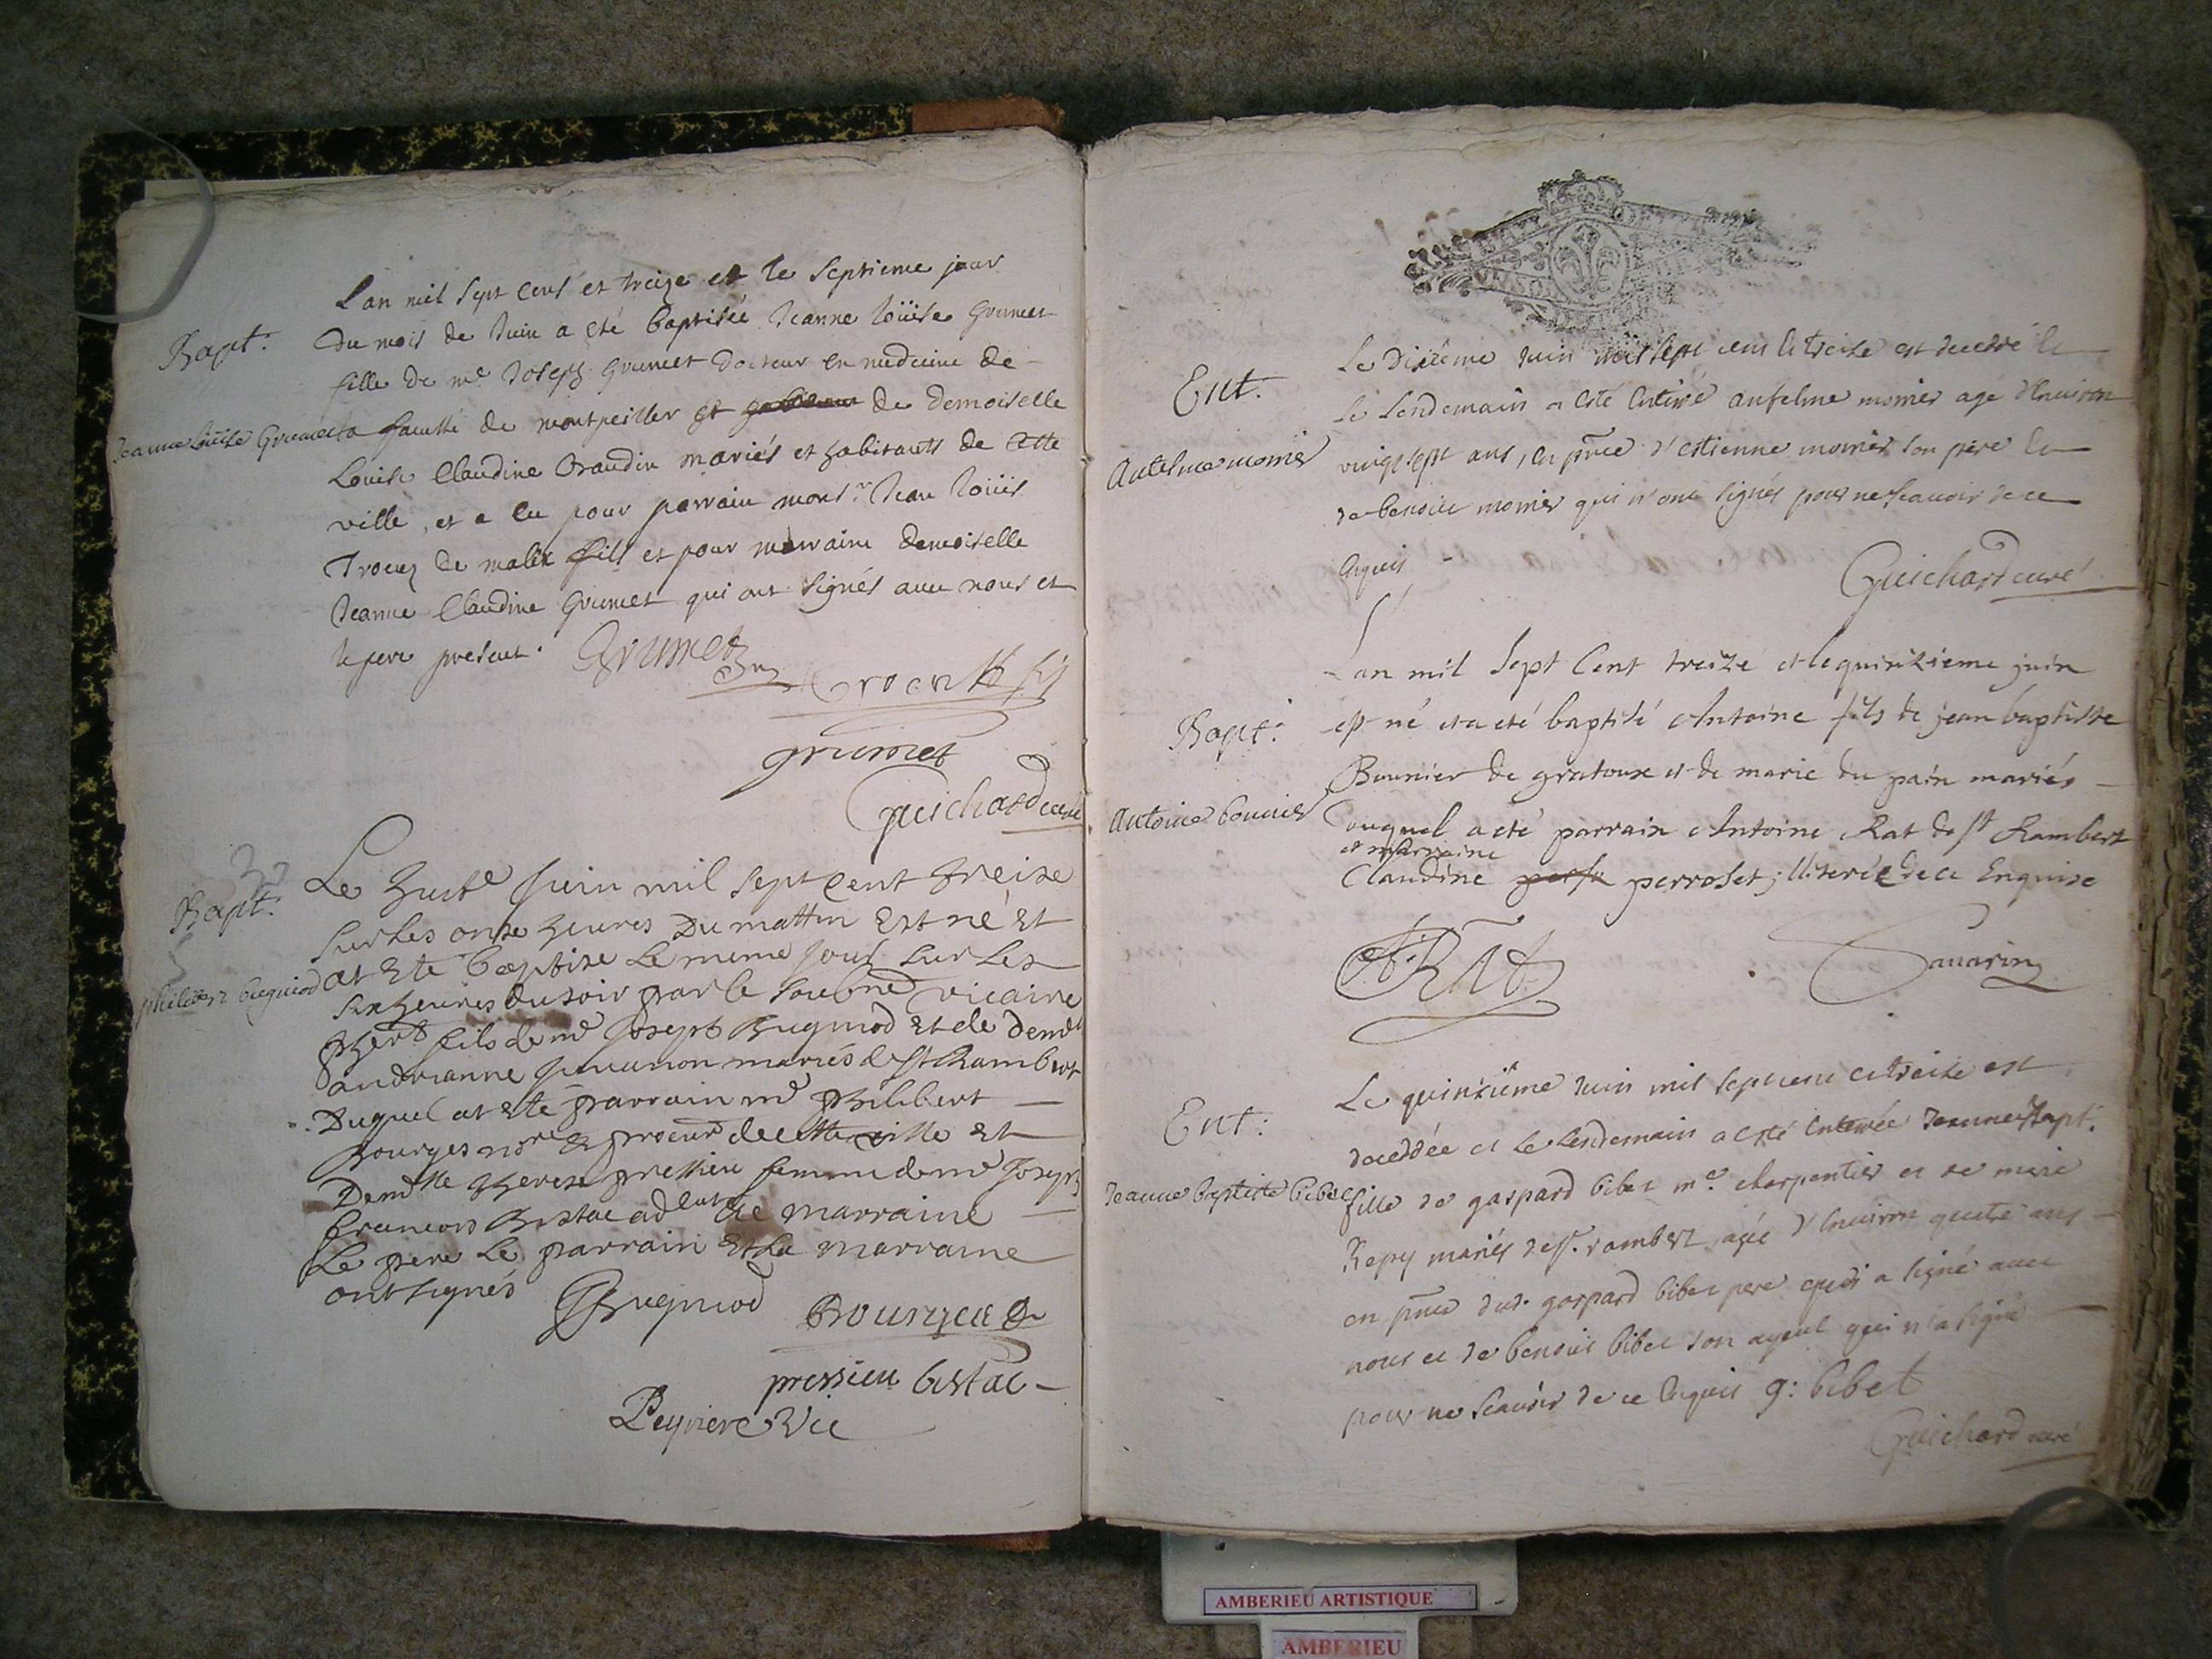 L'an mil sept cens et treize et le septieme jour
Bapt. du mois de Juin a eté baptisée Jeanne Loüise Grumet
fille de me Joseph Grumet docteur en medecine de
Jeanne Loüise Grumet la faculté de montpellier et de demoiselle
Louise Claudine Oraudin mariés et habitants de cette
ville, et a eu pour parrain monsr. Jean Loüis
Trocu de malix fils et pour marraine demoiselle
Jeanne Claudine Grumet qui ont signés avec nous et
le pere present. Grumet
Trocu fils
grumet
Guichard curé
Bapt. Le huite Juin mil sept cent treize
sur les onze heures du mattin est né et
philibert bugniod at ete baptize le meme jour sur les
six heures du soir par le soubné vicaire
phert fils de me Joseph Bugniod et de demlle
andrianne Juvanon mariés de st Rambert
Duquel at ete parrain me philibert
Bourges nore et procur de cette ville et
Demlle therese pressieu femme de me Joseph
francois Bestac advt de marraine
Le pere Le parrain et la marraine
ont signés Bugniod Bourges
pressieu bestac
Peyriere Vic
Ent. Le dixième Juin mil sept cens et treize est decedé et
le lendemain a esté enterré anselme monier agé d'environ
Antelme monier vingt sept ans, en pnce d'estienne monier son père et
de benoit monier qui n'ont signés pour ne scavoir de ce
enquis
Guichard curé
L'an mil sept cent treize et le quinzieme juin
Bapt. est né et a eté baptisé Antoine fils de jean baptiste
Bonnier de gratoux et de marie du pain mariés
Antoine bonnier auquel a eté parrain Antoine Rat de st Rambert
et marraine
Claudine perroset; illiterée de ce Enquise
A. RAt Savarin
Le quinzième Juin mil sept cens et treize est
Ent. decedée et le lendemain a esté enterrée Jeanne Bapt.
Jeanne baptiste bibet fille de gaspard bibet me. charpentier et de marie
Repy mariés de st. rambert, agée d'environ quatre ans
en pnce dud. gaspard bibet pere qui a signé avec
nous et de benoit bibet son ayeul qui n'a signé
pour ne scavoir de ce enquis g: bibet
Guichard curé
AMBERIEU ARTISTIQUE
AMBERIEU